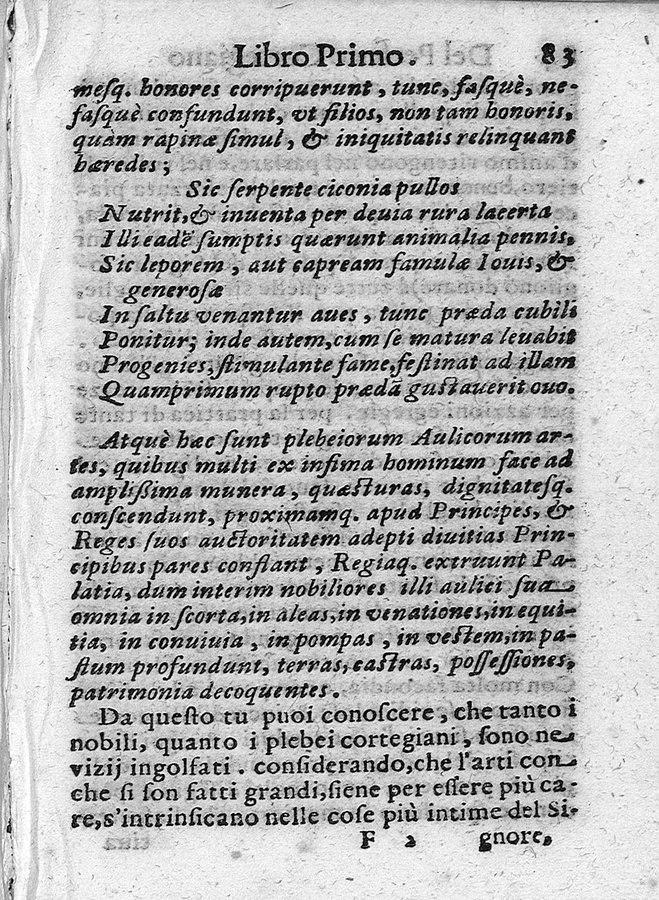 Libro Primo. 83
mesq. honores corripuerunt, tunc, fasquè, ne-
fasquè confundunt, vt filios, non tam honoris,
quàm rapinæ simul, & iniquitatis relinquant
hæredes;
Sic serpente ciconia pullos
Nutrit, & inuenta per deuia rura lacerta
Illi eadē sumptis quærunt animalia pennis,
Sic leporem, aut capream famulæ Iouis, &
generosæ
In saltu venantur aues, tunc præda cubili
Ponitur; inde autem, cum se matura leuabit
Progenies, stimulante fame, festinat ad illam
Quamprimum rupto prædā gustauerit ouo.
Atquè hæc sunt plebeiorum Aulicorum ar-
tes, quibus multi ex infima hominum face ad
amplissima munera, quæsturas, dignitatesq.
conscendunt, proximamq. apud Principes, &
Reges suos auctoritatem adepti diuitias Prin-
cipibus pares conflant, Regiaq. extruunt Pa-
latia, dum interim nobiliores illi aulici sua
omnia in scorta, in aleas, in venationes, in equi-
tia, in conuiuia, in pompas, in vestem, in pa-
stum profundunt, terras, castras, possessiones,
patrimonia decoquentes.
Da questo tu puoi conoscere, che tanto i
nobili, quanto i plebei cortegiani, sono ne
vizij ingolfati. considerando, che l'arti con
che si son fatti grandi, siene per essere più ca-
re, s'intrinsicano nelle cose più intime del Si-
F 2 gnore,